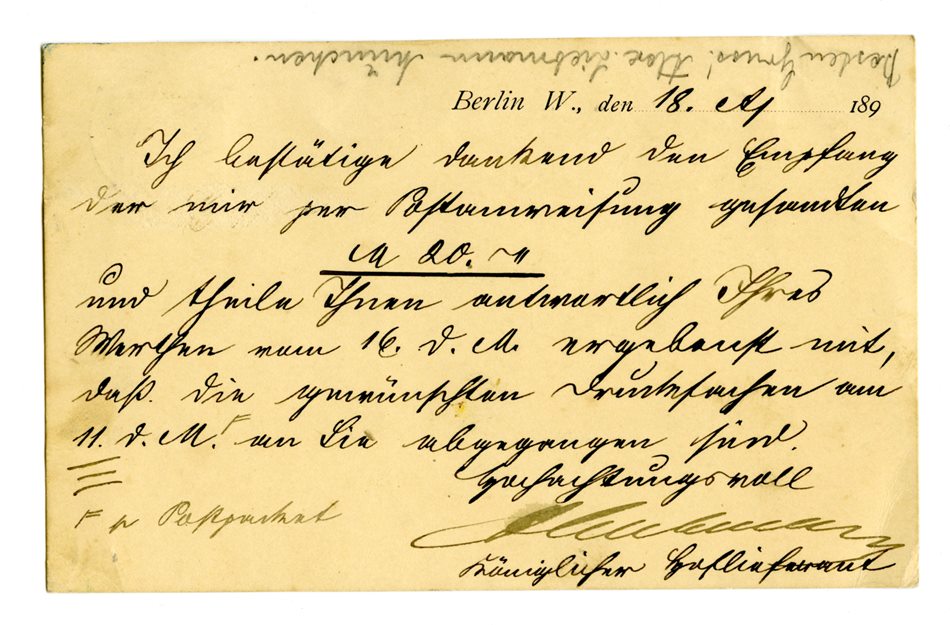 Besten Gruss! Alex. Liebmann München.
Berlin W., den 18. Ap 189
Ich bestätige dankend den Empfang
der mir per Postanweisung gesandten
M 20. –"
und theile Ihnen antwortlich Ihres
Werthen vom 16. d. M. ergebenst mit,
daß die gewünschten Drucksachen am
11. d. M. F an Sie abgegangen sind.
Hochachtungsvoll
Königlicher Hoflieferant
F p Postpacket